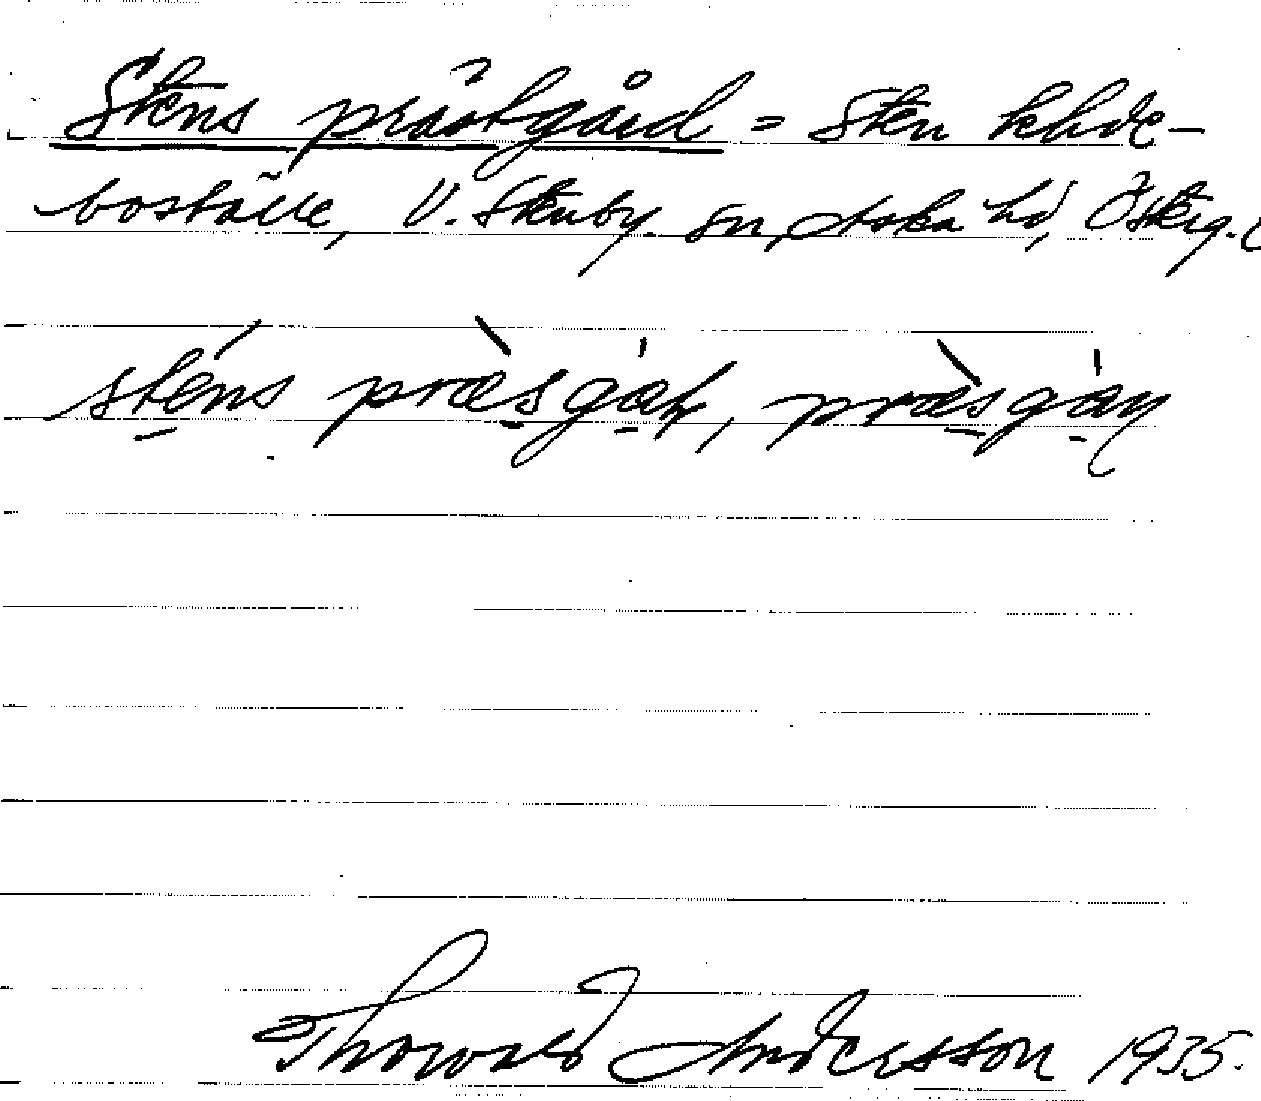 Stens prästgård = Sten khde-
boställe, V. Stenby sn, Aska hd, Österg.
sténs præsgaʈ, præsgaɳ
Thorvald Andersson 1935.